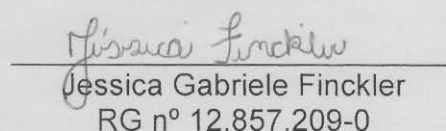 Jéssica Finckler
Jessica Gabriele Finckler
RG nº 12.857.209-0